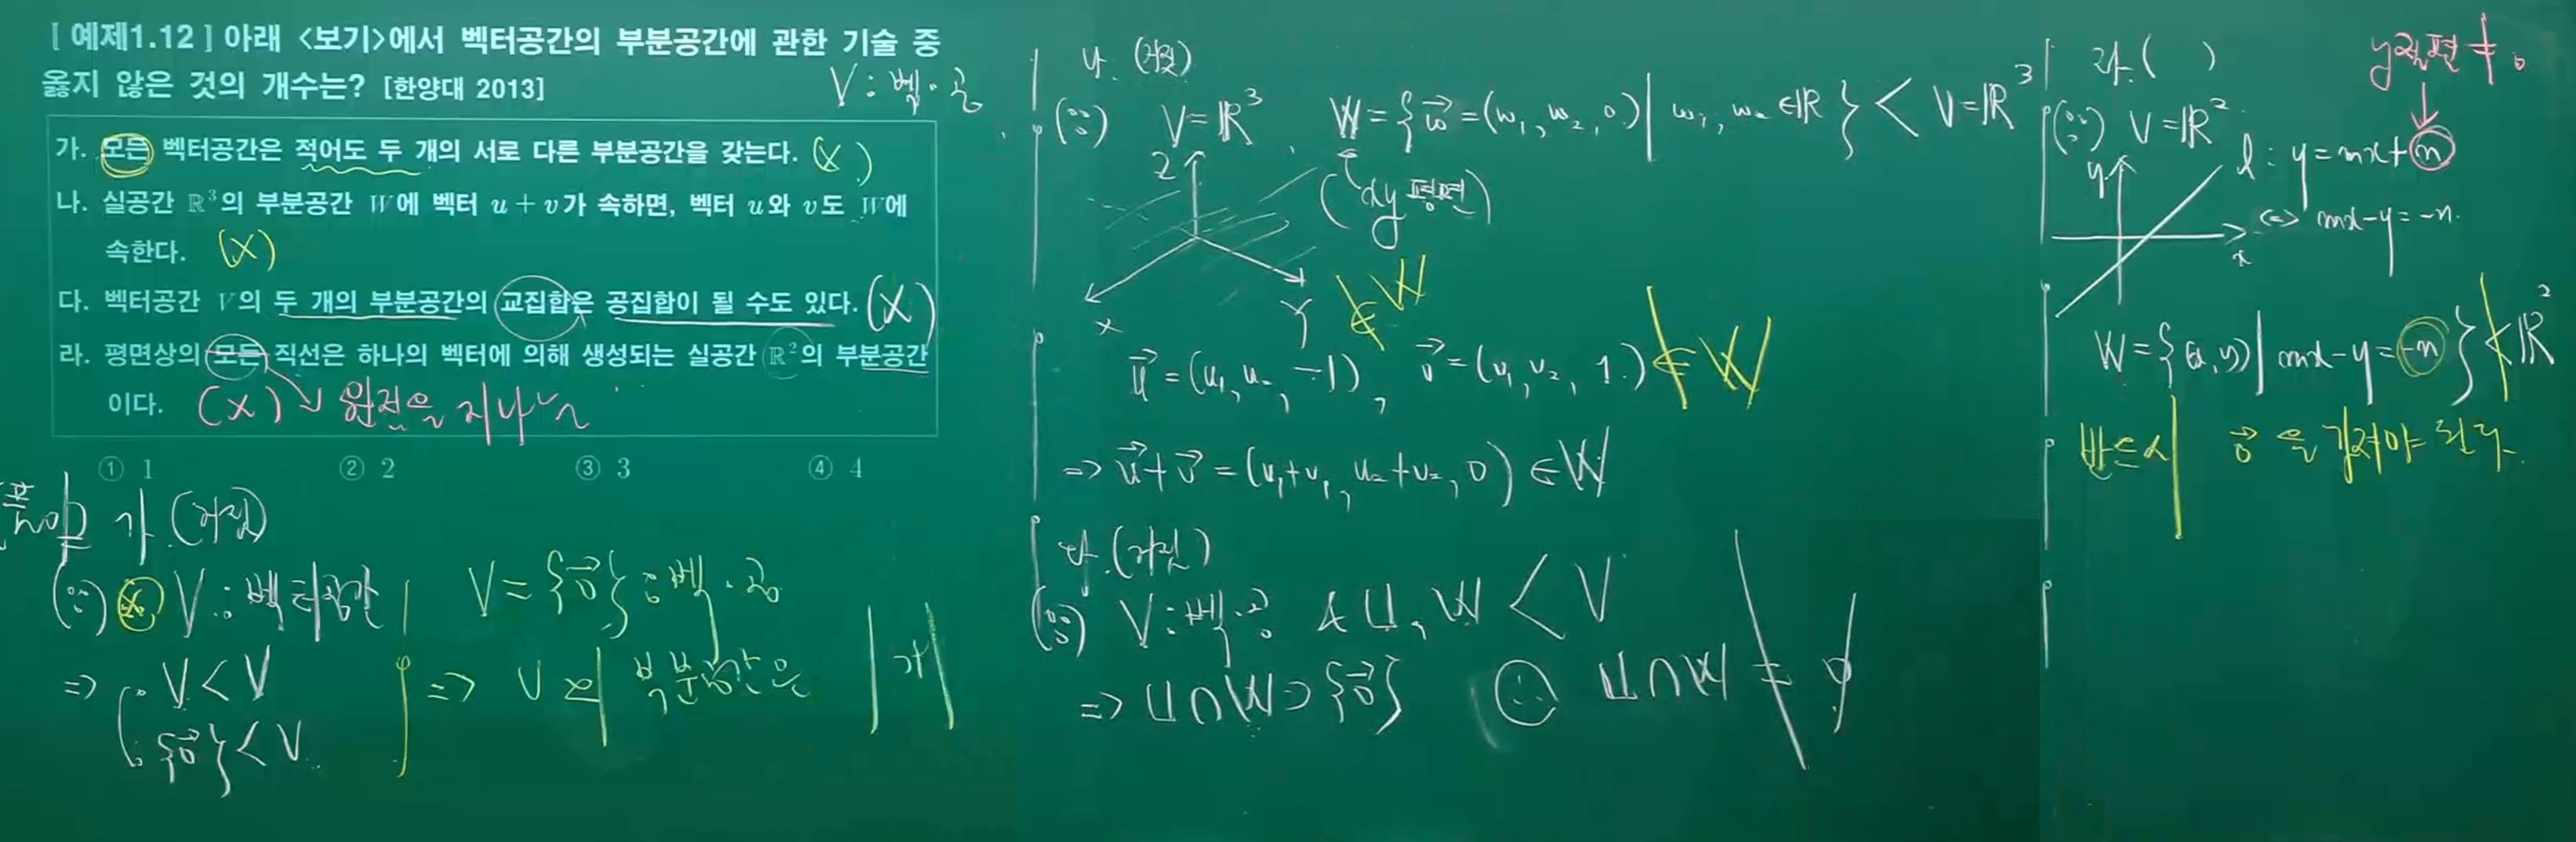 [ 예제1.12 ] 아래 <보기>에서 벡터공간의 부분공간에 관한 기술 중
옳지 않은 것의 개수는? [한양대 2013]
V : 벡·공
가. 모든 벡터공간은 적어도 두 개의 서로 다른 부분공간을 갖는다. (X)
나. 실공간 ℝ³의 부분공간 W에 벡터 u + v가 속하면, 벡터 u와 v도 W에
속한다. (X)
다. 벡터공간 V의 두 개의 부분공간의 교집합은 공집합이 될 수도 있다. (X)
라. 평면상의 모든 직선은 하나의 벡터에 의해 생성되는 실공간 ℝ²의 부분공간
이다. (X) 원점을 지나는
① 1 ② 2 ③ 3 ④ 4
풀이 가 (거짓)
(∵) V : 벡터공간
⇒ V < V
{0⃗} < V
V = {0⃗} : 벡·공
⇒ V의 부분공간은 1개
나. (거짓)
(∵) V = ℝ³ W = { w⃗ = (w₁, w₂, 0) | w₁, w₂ ∈ ℝ } < V = ℝ³
(xy 평면)
Z
x
Y
∉ W
u⃗ = (u₁, u₂, -1), v⃗ = (v₁, v₂, 1) ∉ W
⇒ u⃗ + v⃗ = (u₁+v₁, u₂+v₂, 0) ∈ W
다. (거짓)
(∵) V : 벡·공 & U, W < V
⇒ U ∩ W ⊃ {0⃗} ∴ U ∩ W ≠ ∅
라. ( )
y절편 ≠ 0
(∵) V = ℝ²
y
x
l : y = mx + n
⇔ mx - y = -n.
W = { (x, y) | mx - y = -n } ≮ ℝ²
반드시 0⃗ 을 가져야 된다.